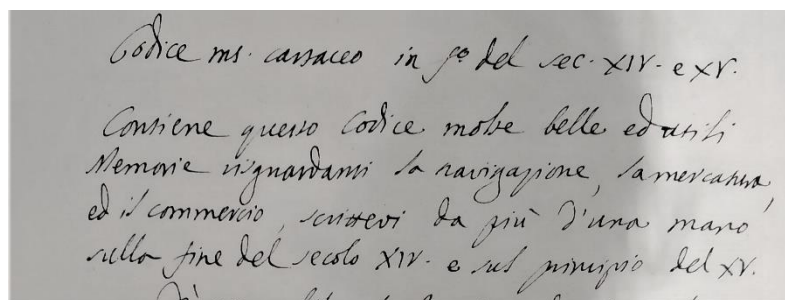 Codice ms. cartaceo in fº del sec. XIV. e XV.
Contiene questo Codice molte belle ed utili
Memorie risguardanti la navigazione, la mercatura,
ed il commercio, scrittevi da più d'una mano
sulla fine del secolo XIV. e sul principio del XV.